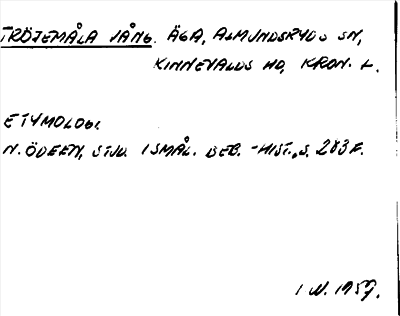 TRÖJEMÅLA VÅNG. ÄGA, ALMUNDSRYDS SN,
KINNEVALDS HD, KRON. L.
ETYMOLOGI.
N. ÖDEEN, STUD. I SMÅL. BEB.-HIST., S. 283 F.
I N. 1959.